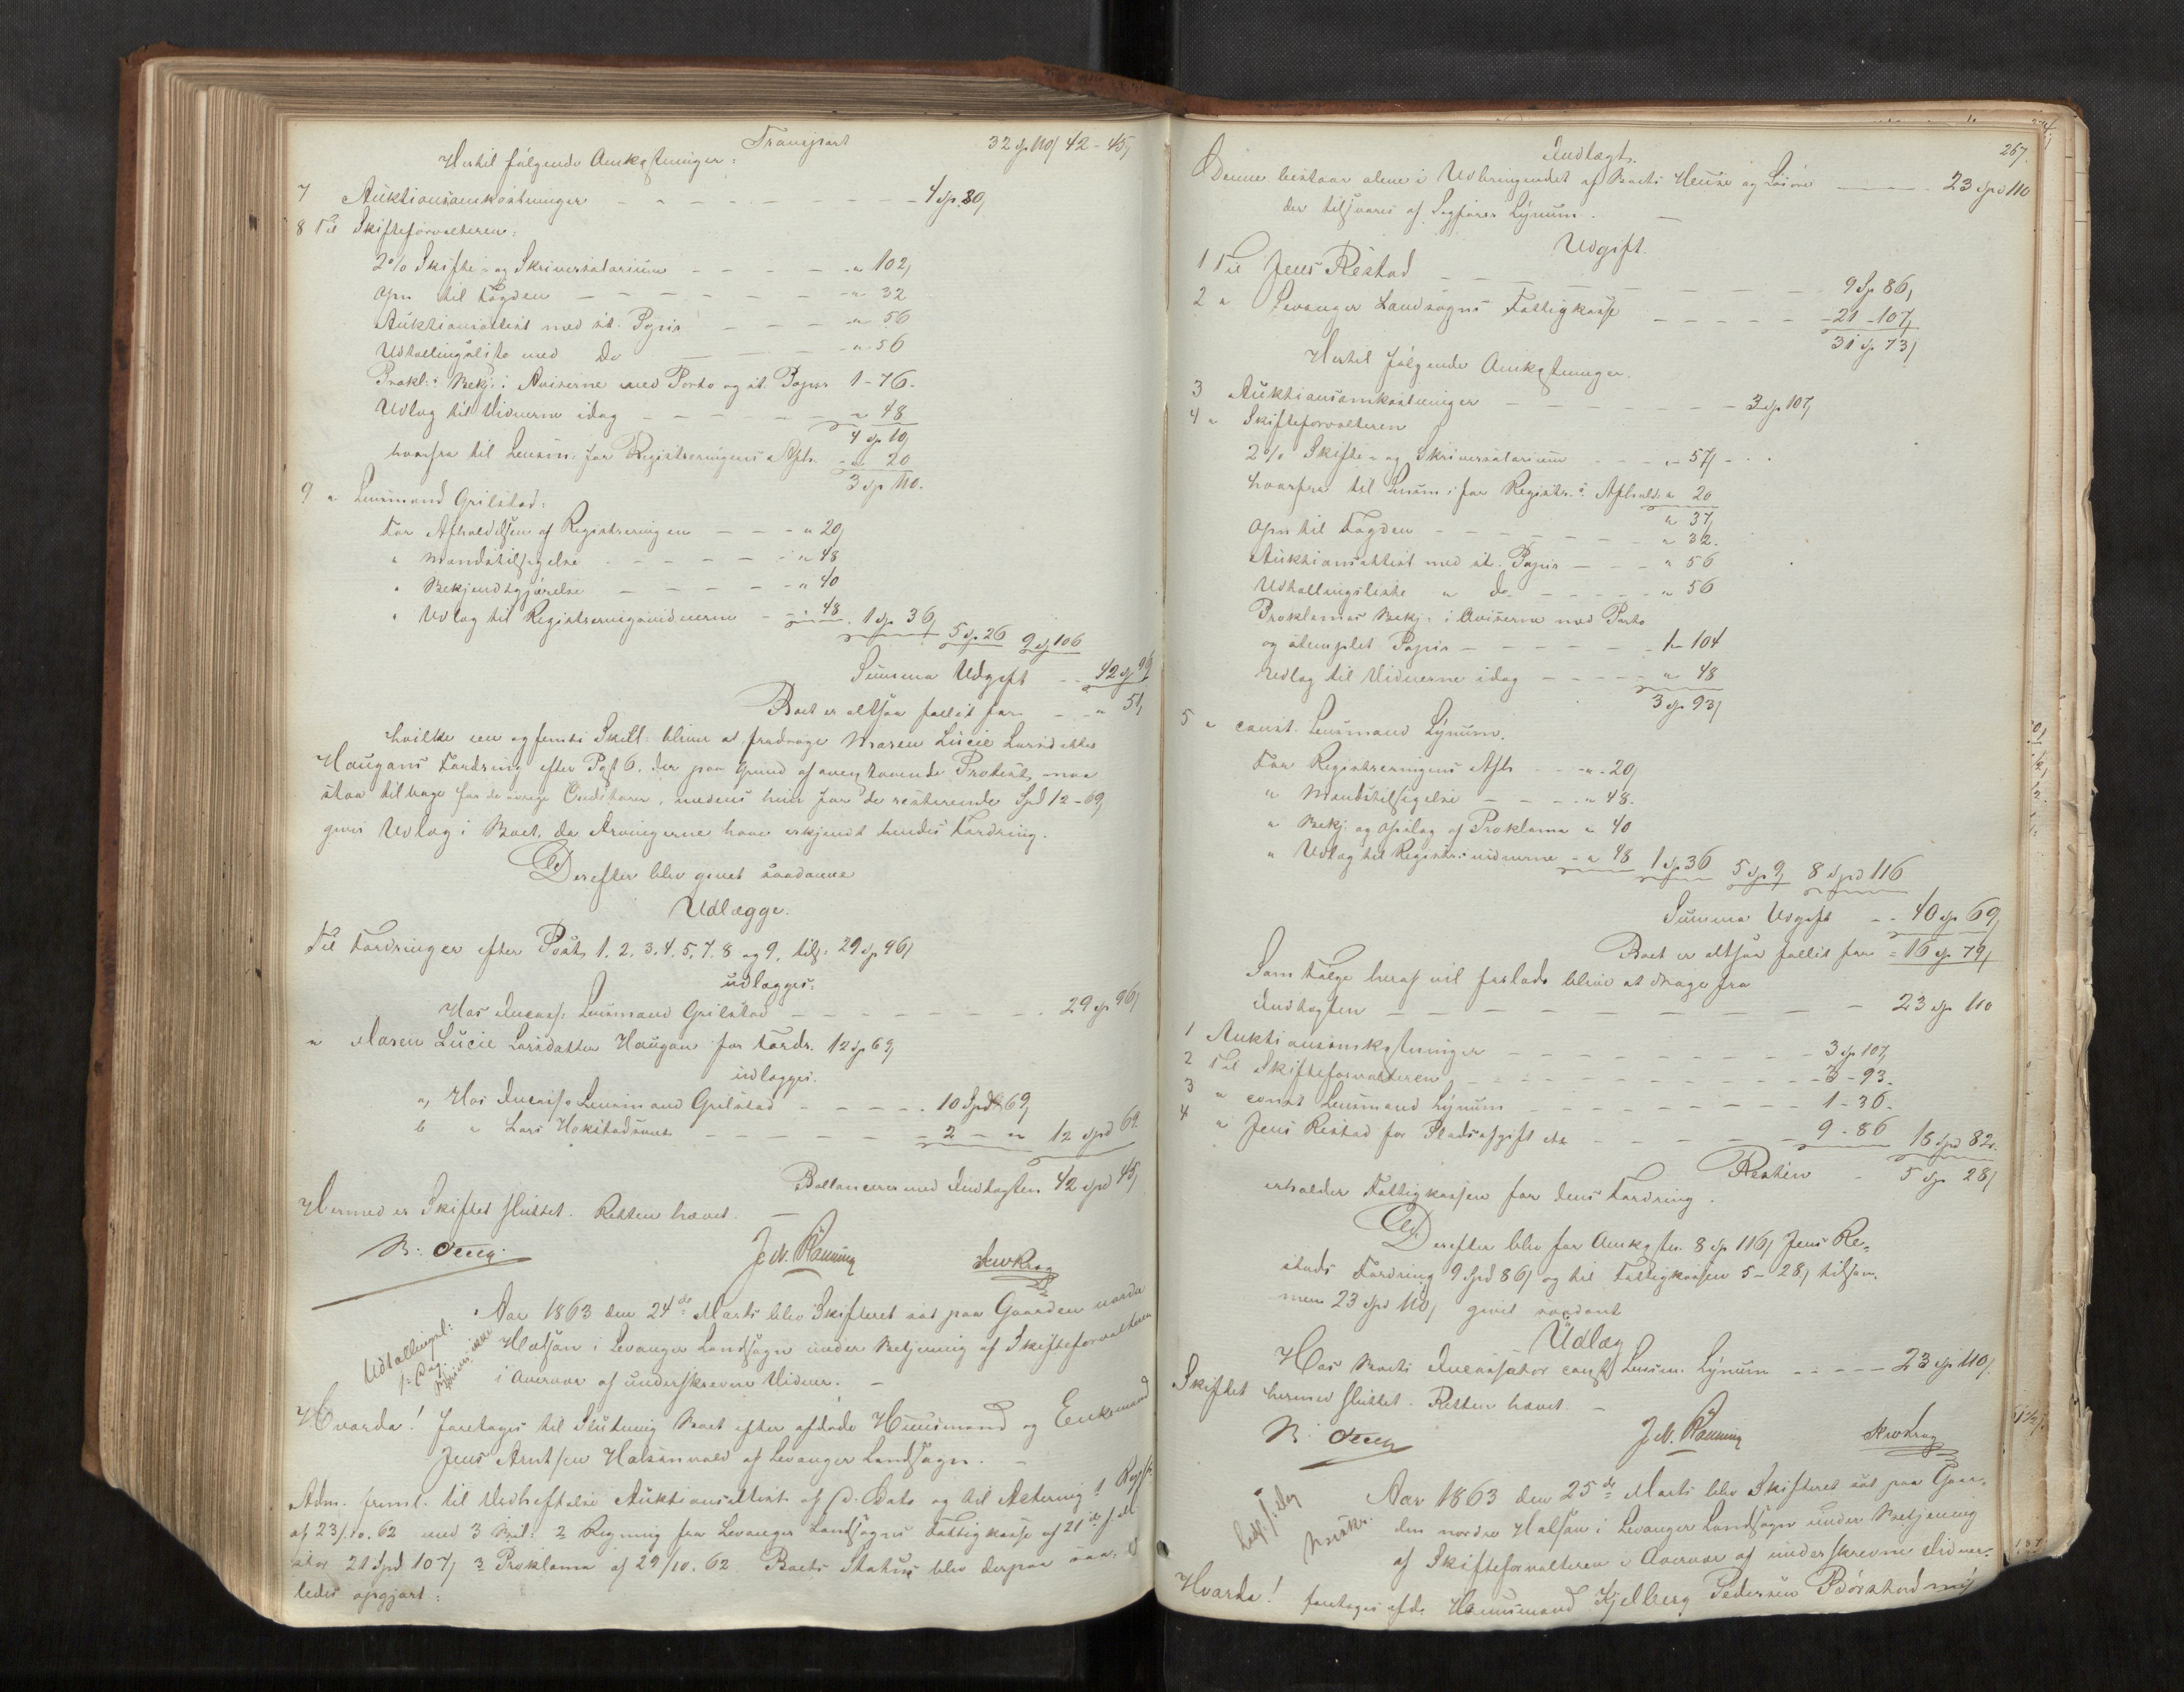 Transport 32 sp 110/ 42 - 45/
Hertil følgende Omkostninger:
7 Auktionsomkostninger - - - 4 sp. 80/
8 Til Skifteforvalteren:
2% Skifte- og Skriversalarium - - - " 102/
Opn til Fogden - - - " 32
Auktionsattest med st. Papir - - - " 56
Udtællingsliste med do - - - " 56
Prokl: Bekj: i Aviserne med Porto og st. Papir 1 - 76.
Udlæg til Vidnerne idag - - - " 48
4 sp 10/
hvorfra til Lensm: for Registreringens Afh. - " 20
3 sp 110.
9 " Lensmand Grilstad:
For Afholdelsen af Registreringen - - - " 20/
" Mandstilsigelse - - - " 48
" Bekjendtgjørelse - - - " 40
" Udlæg til Registreringsvidnerne - - " 48. 1 sp. 36/ 5 sp. 26 9 sp 106
Summa Udgift - - 42 sp 96/
Boet er altsaa fallit for - - " 51/
hvilke een og femti Skill: bliver at fradrage Maren Lucie Larsdatter
Haugans Fordring efter Post 6, der paa Grund af Protest maa
staa tilbage for de øvrige Creditorer, medens hun for de resterende Spd 12 - 69/
gives Udlæg i Boet, da Arvingerne have erkjendt hendes Fordring.
Derefter blev gjort saadanne
Udlægge.
Til Fordringer efter Post, 1. 2. 3. 4. 5. 7. 8 og 9. tils: 29 sp 96/
udlægges:
Hos Incass: Lensmand Grilstad - - - 29 sp 96/
" Maren Lucie Larsdatter Haugan for Fordr. 12 sp 69/
udlægges.
a, Hos Incass: Lensmand Grilstad - - - 10 Spd 69/
b " Lars Hokstad - - - 2 - " 12 spd 69.
Ballancerer med Indtægten 42 spd 45/
Hermed er Skiftet sluttet. Retten hævet. -
J. N. Ranning
Aar 1863 den 24de Marts blev Skifteret sat paa Gaarden nordre
Halsan i Levanger Landsogn under Betjening af Skifteforvalteren
i Overvær af underskrevne Vidner. -
Udtællingsl:
Hvorda! foretoges til Slutning Boet efter afdøde Huusmand og Enkemand
Jens Arntsen Halsanvald af Levanger Landsogn. -
Adm. freml. til Vedheftelse Auktionsattest af d. Dato og til Actering 1 Regstr.
af 23/10. 62 med 3 Bil: 2 Regning fra Levanger Landsogns Fattigkasse af 21de d. M.
stor 21 Spd 107/ 3 Proklama af 29/10. 62 Boets Status blev derpaa saa-
ledes opgjort:
267.
Indtægt.
Denne bestaar alene i Udbringendet af Boets Heuse og Løsøre - - - 23 spd 110
der tilsvares af Sagfører Lynum. -
Udgift.
1 Til Jens Restad - - - 9 Sp 86/
2 " Levanger Landsogns Fattigkasse - - - - 21 - 107/
31 sp 73/
Hertil følgende Omkostninger.
3 Auktionsomkostninger - - - 3 sp 107/
4 " Skifteforvalteren
2% Skifte- og Skriversalarium - - " - 57/ -
hvorfra til Lensm: for Registr: s Afhold. " 20
" 37/
Opn til Fogden - - - " 32.
Auktionsattest med st. Papir - - - " 56
Udtællingsliste " do - - - " 56
Proklamas Bekj: i Aviserne med Porto
og stemplet Papir - - - 1 - 104
Udlæg til Vidnerne idag - - - " 48
3 sp 93/
5 " const. Lensmand Lynum.
For Registreringens Afh - - - " - 20/
" Mandstilsigelse - - - " 48.
" Bekj. og Opslag af Proklama " 40
" Udlæg til Registr: vidnerne - " 48 1 sp 36 5 sp 9/ 8 spd 116
Summa Udgift - - 40 sp 69/
Boet er altsaa fallit for = 16 sp 79/
Som Følge heraf vil forlods blive at drage fra
Indtægten - - - 23 sp 110
1 Auktionsomkostninger - - - 3 sp 107/
2 Til Skifteforvalteren - - - 3 - 93.
3 " const Lensmand Lynum - - - 1 - 36.
4 " Jens Restad for Pladsafgift etc - - - 9 - 86 18 spd 82.
Resten - 5 Sp 28/
erholder Fattigkassen for dens Fordring.
Derefter blev for Omkostn. 8 sp 116/ Jens Re-
stads Fordring 9 Spd 86/ og til Fattigkassen 5 - 28/ tilsam-
men 23 Spd 110/ gjort saadant
Udlæg
Hos Boets Incassator const Lensm. Lynum - - - 23 sp 110/.
Skiftet hermed sluttet. Retten hævet. -
J. N. Ranning
Aar 1863 den 25de Marts blev Skifteret sat paa Gaar-
den nordre Halsan i Levanger Landsogn under Betjening
af Skifteforvalteren i Overvær af underskrevne Vidner.
Hvorda! foretoges afd. Huusmand Kjelberg Pedersen